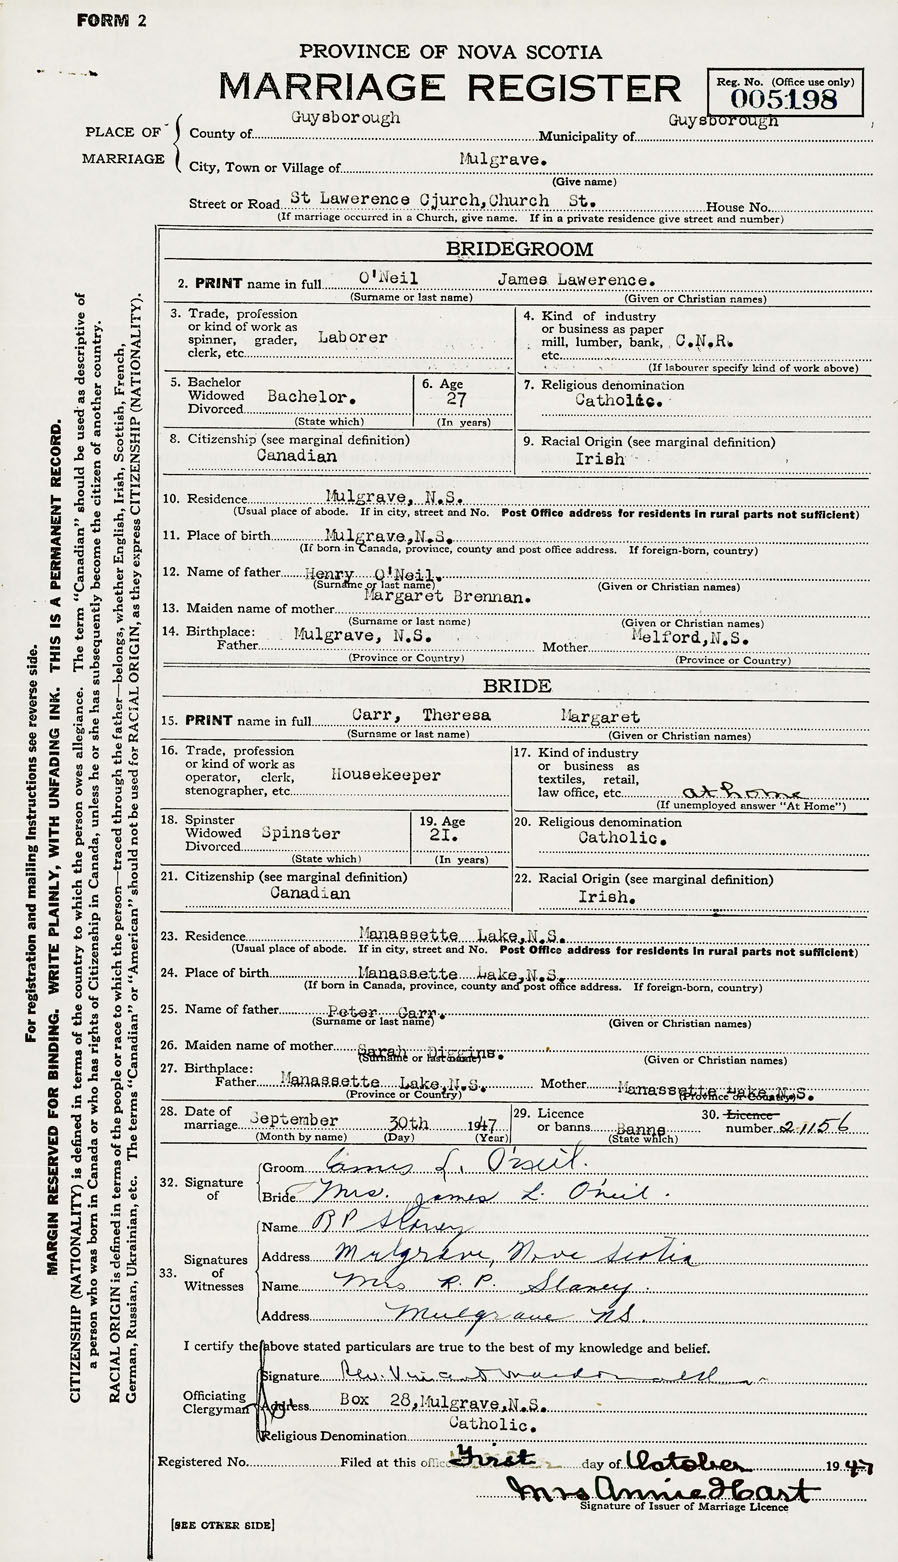 FORM 2
PROVINCE OF NOVA SCOTIA
MARRIAGE REGISTER
Reg. No. (Office use only)
005198
PLACE OF MARRIAGE
County of Guysborough Municipality of Guysborough
City, Town or Village of Mulgrave.
(Give name)
Street or Road St Lawerence Cjurch,Church St. House No.
(If marriage occurred in a Church, give name. If in a private residence give street and number)
BRIDEGROOM
2. PRINT name in full O'Neil James Lawerence.
(Surname or last name) (Given or Christian names)
3. Trade, profession or kind of work as spinner, grader, clerk, etc. Laborer
4. Kind of industry or business as paper mill, lumber, bank, etc. C.N.R.
(If labourer specify kind of work above)
5. Bachelor Widowed Divorced Bachelor.
(State which)
6. Age 27
(In years)
7. Religious denomination
Catholic.
8. Citizenship (see marginal definition)
Canadian
9. Racial Origin (see marginal definition)
Irish
10. Residence Mulgrave, N.S.
(Usual place of abode. If in city, street and No. Post Office address for residents in rural parts not sufficient)
11. Place of birth Mulgrave,N.S.
(If born in Canada, province, county and post office address. If foreign-born, country)
12. Name of father Henry O'Neil.
(Surname or last name) (Given or Christian names)
Margaret Brennan.
13. Maiden name of mother
(Surname or last name) (Given or Christian names)
14. Birthplace: Father Mulgrave, N.S. Mother Melford,N.S.
(Province or Country) (Province or Country)
BRIDE
15. PRINT name in full Carr, Theresa Margaret
(Surname or last name) (Given or Christian names)
16. Trade, profession or kind of work as operator, clerk, stenographer, etc. Housekeeper
17. Kind of industry or business as textiles, retail, law office, etc. at home
(If unemployed answer "At Home")
18. Spinster Widowed Divorced Spinster
(State which)
19. Age 2I.
(In years)
20. Religious denomination
Catholic.
21. Citizenship (see marginal definition)
Canadian
22. Racial Origin (see marginal definition)
Irish.
23. Residence Manassette Lake,N.S.
(Usual place of abode. If in city, street and No. Post Office address for residents in rural parts not sufficient)
24. Place of birth Manassette Lake,N.S.
(If born in Canada, province, county and post office address. If foreign-born, country)
25. Name of father Peter Carr.
(Surname or last name) (Given or Christian names)
26. Maiden name of mother Sarah Diggins.
(Surname or last name) (Given or Christian names)
27. Birthplace: Father Manassette Lake,N.S. Mother Manassette Lake,N.S.
(Province or Country) (Province or Country)
28. Date of marriage September 30th 1947
(Month by name) (Day) (Year)
29. Licence or banns Banns
(State which)
30. Licence number 21156
32. Signature of
Groom James L. O'neil.
Bride Mrs. James L. O'neil.
33. Signatures of Witnesses
Name R P Slaney
Address Mulgrave, Nova Scotia
Name Mrs R. P. Slaney.
Address Mulgrave NS.
I certify the above stated particulars are true to the best of my knowledge and belief.
Officiating Clergyman
Signature Rev. Vincent Macdonald
Address Box 28,Mulgrave,N.S.
Catholic.
Religious Denomination
Registered No. Filed at this office First day of October 1947
Mrs Annie Hart
Signature of Issuer of Marriage Licence
[SEE OTHER SIDE]
For registration and mailing Instructions see reverse side.
MARGIN RESERVED FOR BINDING. WRITE PLAINLY, WITH UNFADING INK. THIS IS A PERMANENT RECORD.
CITIZENSHIP (NATIONALITY) is defined in terms of the country to which the person owes allegiance. The term "Canadian" should be used as descriptive of
a person who was born in Canada or who has rights of Citizenship in Canada, unless he or she has subsequently become the citizen of another country.
RACIAL ORIGIN is defined in terms of the people or race to which the person—traced through the father—belongs, whether English, Irish, Scottish, French,
German, Russian, Ukrainian, etc. The terms "Canadian" or "American" should not be used for RACIAL ORIGIN, as they express CITIZENSHIP (NATIONALITY).